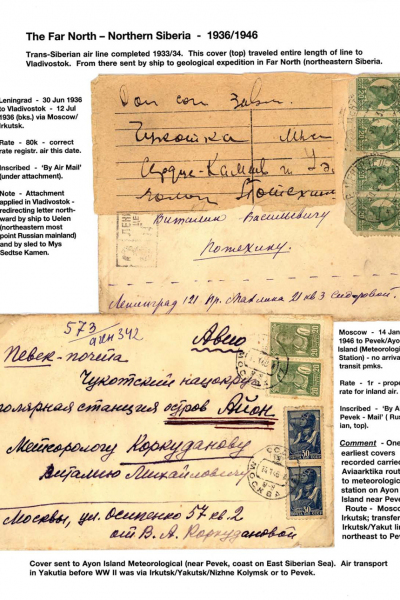 The Far North – Northern Siberia - 1936/1946
Trans-Siberian air line completed 1933/34. This cover (top) traveled entire length of line to
Vladivostok. From there sent by ship to geological expedition in Far North (northeastern Siberia.
Leningrad - 30 Jun 1936
to Vladivostok - 12 Jul
1936 (bks.) via Moscow/
Irkutsk.
Rate - 80k - correct
rate registr. air this date.
Inscribed - 'By Air Mail'
(under attachment).
Note - Attachment
applied in Vladivostok -
redirecting letter north-
ward by ship to Uelen
(northeastern most
point Russian mainland)
and by sled to Mys
Sedtse Kamen.
Чукотка Мыс
Сердце-Камень
Виталию Васильевичу
Потехину.
Ленинград 121 Пр. Маклина 21 кв 3 Сидоровой.
Moscow - 14 Jan
1946 to Pevek/Ayo
Island (Meteorological
Station) - no arriva
transit pmks.
Rate - 1r - prope
rate for inland air.
Inscribed - 'By A
Pevek - Mail' ( Rus
ian, top).
Comment - One
earliest covers
recorded carrie
Aviaarktika rout
to meteorologica
station on Ayon
Island near Pevek
Route - Mosco
Irkutsk; transfer
Irkutsk/Yakut lin
northeast to Peve
573/
Авио
Певек-почта
Чукотский нацокруг
полярная станция остров Айон
Метеорологу Коркуданову
Виталию Михайловичу
Москвы, ул. Осипенко 57 кв. 2
от В. А. Коркудановой
20
20
30
30
Cover sent to Ayon Island Meteorological (near Pevek, coast on East Siberian Sea). Air transport
in Yakutia before WW II was via Irkutsk/Yakutsk/Nizhne Kolymsk or to Pevek.